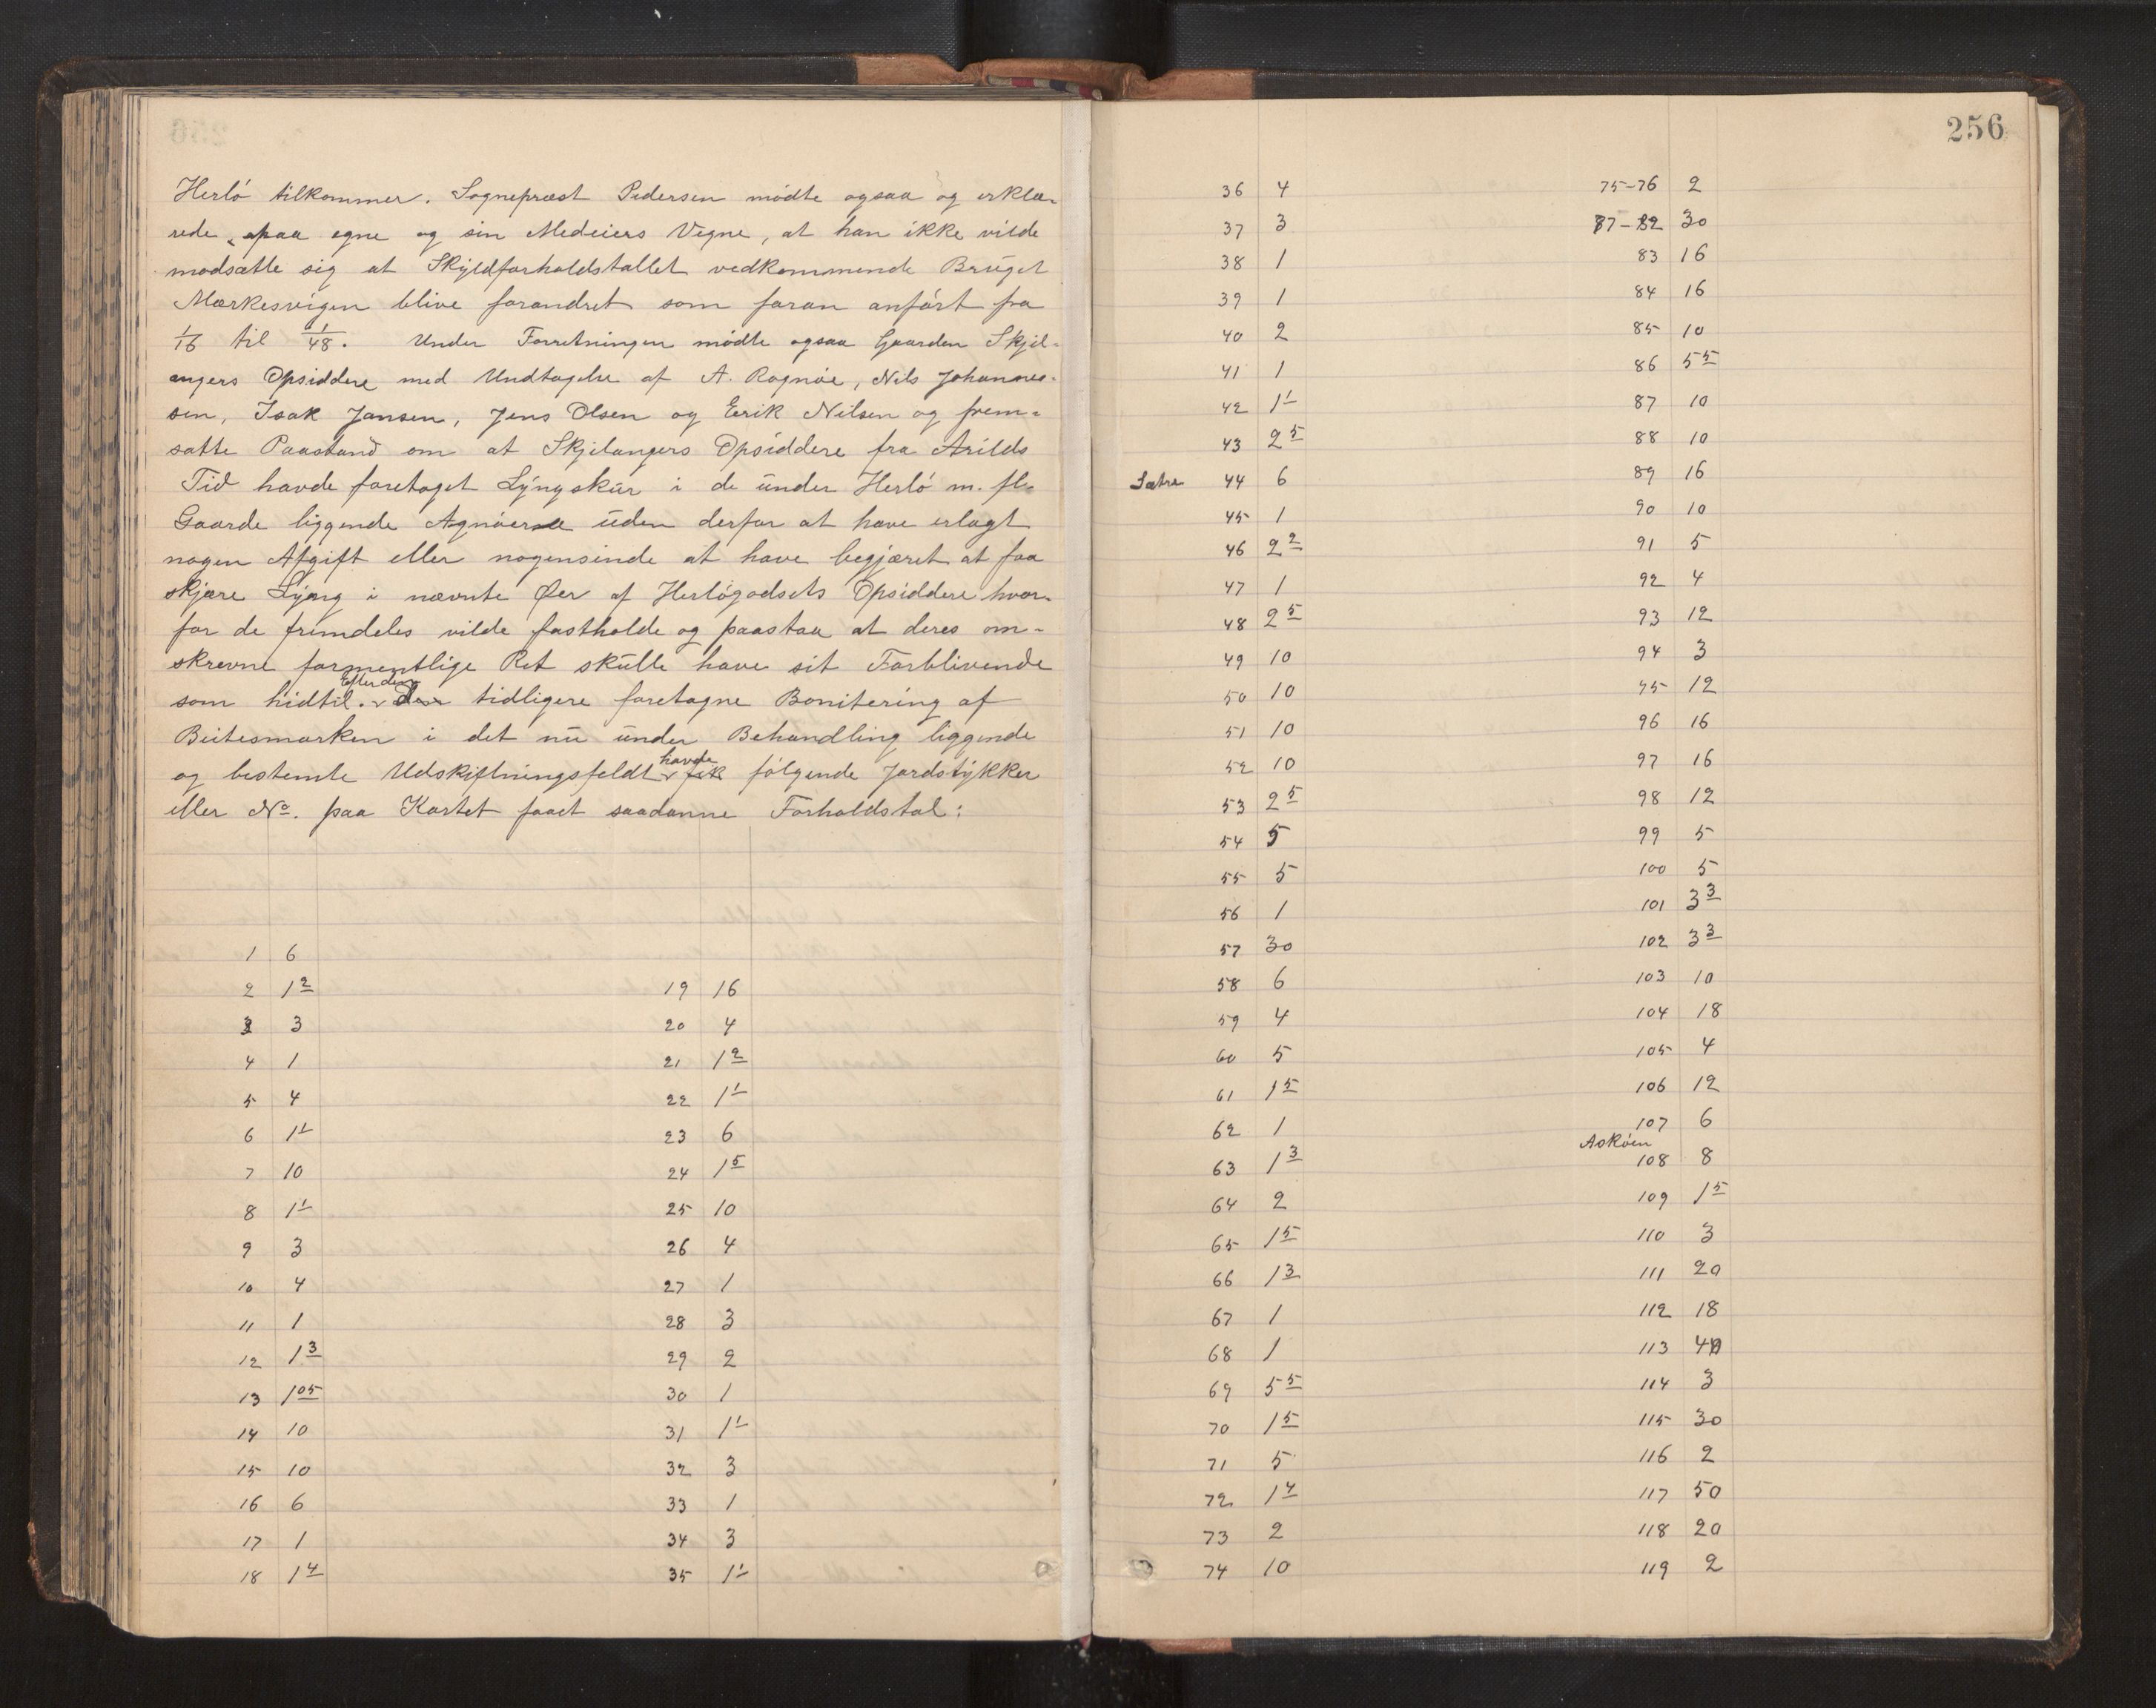 Herlö tilkommer. Sogneprest Pedersen mödte ogsaa og erklæ-
rede, paa egne og sin Medeiers Vegne, at han ikke vilde
modsætte sig at Skyldforholdstallet vedkommende Bruget
Mærkesvigen blive forandret som foran anfört fra
1/16 til 1/48. Under Forretningen mödte ogsaa Gaarden Skjel-
angers Opsiddere med Undtagelse af A. Rognöe, Nils Johannes-
sen, Isak Jansen, Jens Olsen og Eerik Nilsen og frem-
satte Paastand om at Skjelangers Opsiddere fra Arilds
Tid havde foretaget Lýngskúr i de únder Herlö m. fl.
Gaarde liggende Agnöerne úden derfor at have erlagt
nogen Afgift eller nogensinde at have begjæret at faa
skjære Lýng i nævnte Øer af Herlögodsets Opsiddere hvor-
for de fremdeles vilde fastholde og paastaa at deres om-
skrevne formentlige Ret skúlle have sit Forblivende
som hidtil. Efter den tidligere foretagne Bonitering af
Beitesmarken i det nú únder Behandling liggende
og bestemte Udskiftningsfeldt havde fölgende Jordstýkker
eller No. paa Kartet faaet saadanne Forholdstal:
1 6
2 1 2
3 3
4 1
5 4
6 1 1
7 10
8 1 1
9 3
10 4
11 1
12 1 3
13 1 05
14 10
15 10
16 6
17 1
18 1 4
19 16
20 4
21 1 2
22 1 1
23 6
24 1 5
25 10
26 4
27 1
28 3
29 2
30 1
31 1 1
32 3
33 1
34 3
35 1 1
256
36 4
37 3
38 1
39 1
40 2
41 1
42 1 1
43 2 5
Sætre 44 6
45 1
46 2 2
47 1
48 2 5
49 10
50 10
51 10
52 10
53 2 5
54 5
55 5
56 1
57 30
58 6
59 4
60 5
61 1 5
62 1
63 1 3
64 2
65 1 5
66 1 3
67 1
68 1
69 5 5
70 1 5
71 5
72 1 4
73 2
74 10
75-76 2
77-82 30
83 16
84 16
85 10
86 5 5
87 10
88 10
89 16
90 10
91 5
92 4
93 12
94 3
95 12
96 16
97 16
98 12
99 5
100 5
101 3 3
102 3 3
103 10
104 18
105 4
106 12
107 6
Asköen
108 8
109 1 5
110 3
111 20
112 18
113 40
114 3
115 30
116 2
117 50
118 20
119 2